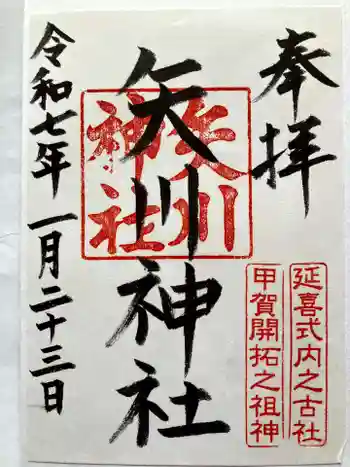 奉拝
延喜式内之古社
甲賀開拓之祖神
矢川神社
矢川
神社
令和七年一月二十三日